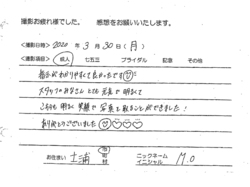 撮影お疲れ様でした。 感想をお願いいたします。
<撮影日時> 2020 年 3 月 30 日 (月)
<撮影項目> 成人 七五三 ブライダル 記念 その他
指示がわかりやすくて良かったです
スタッフのみなさん とても 元気で 明るくて
こちらも 明るく 笑顔で 写真を 撮ることができました!
ありがとうございました
お住まい 土浦 市 町 村
ニックネーム イニシャル M.O